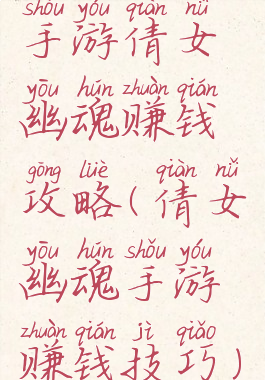 shǒu yóu qiàn nǚ
手游倩女
yōu hún zhuàn qián
幽魂赚钱
gōng lüè qiàn nǚ
攻略(倩女
yōu hún shǒu yóu
幽魂手游
zhuàn qián jì qiǎo
赚钱技巧)